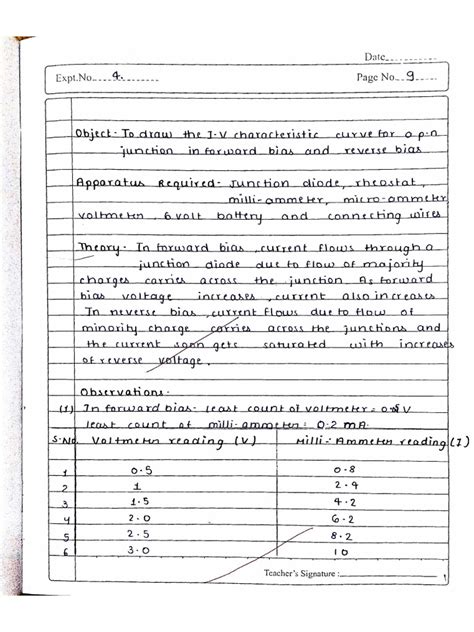 Date............
Expt.No....4...........
Page No...9......
Object- To draw the I-V characteristic curve for a p-n
junction in forward bias and reverse bias
Apparatus Required- Junction diode, rheostat,
milli-ammeter, micro-ammeter
voltmeter, 6 volt battery and connecting wires
Theory- In forward bias, current flows through a
junction diode due to flow of majority
charges carries across the junction. As forward
bias voltage increases, current also increases
In reverse bias, current flows due to flow of
minority charge carries across the junctions and
the current soon gets saturated with increases
of reverse voltage.
Observations-
(1) In forward bias- least count of voltmeter = V
least count of milli-ammeter = 0.2 mA.
S.No. Voltmeter reading (V) Milli-Ammeter reading (I)
1 0.5 0.8
2 1 2.4
3 1.5 4.2
4 2.0 6.2
5 2.5 8.2
6 3.0 10
Teacher's Signature :